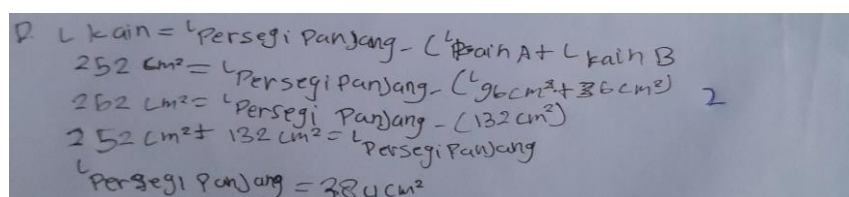 D. L kain = L Persegi Panjang - (L kain A + L kain B
252 cm² = L Persegi Panjang - (L 96 cm² + 36 cm²)
262 cm² = L Persegi Panjang - (132 cm²) 2
252 cm² + 132 cm² = L Persegi Panjang
L Persegi Panjang = 384 cm²